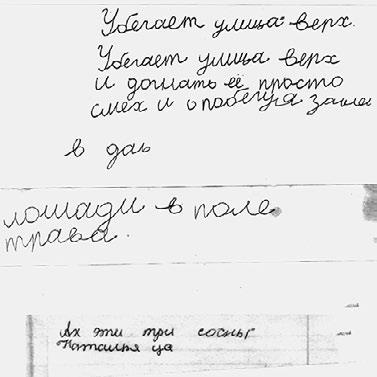 Убегает улица вверх.
Убегает улица вверх
и догнать её просто
смех и
в даь
лошади в поле
трава.
Ах эти три сосны
Наташья ца